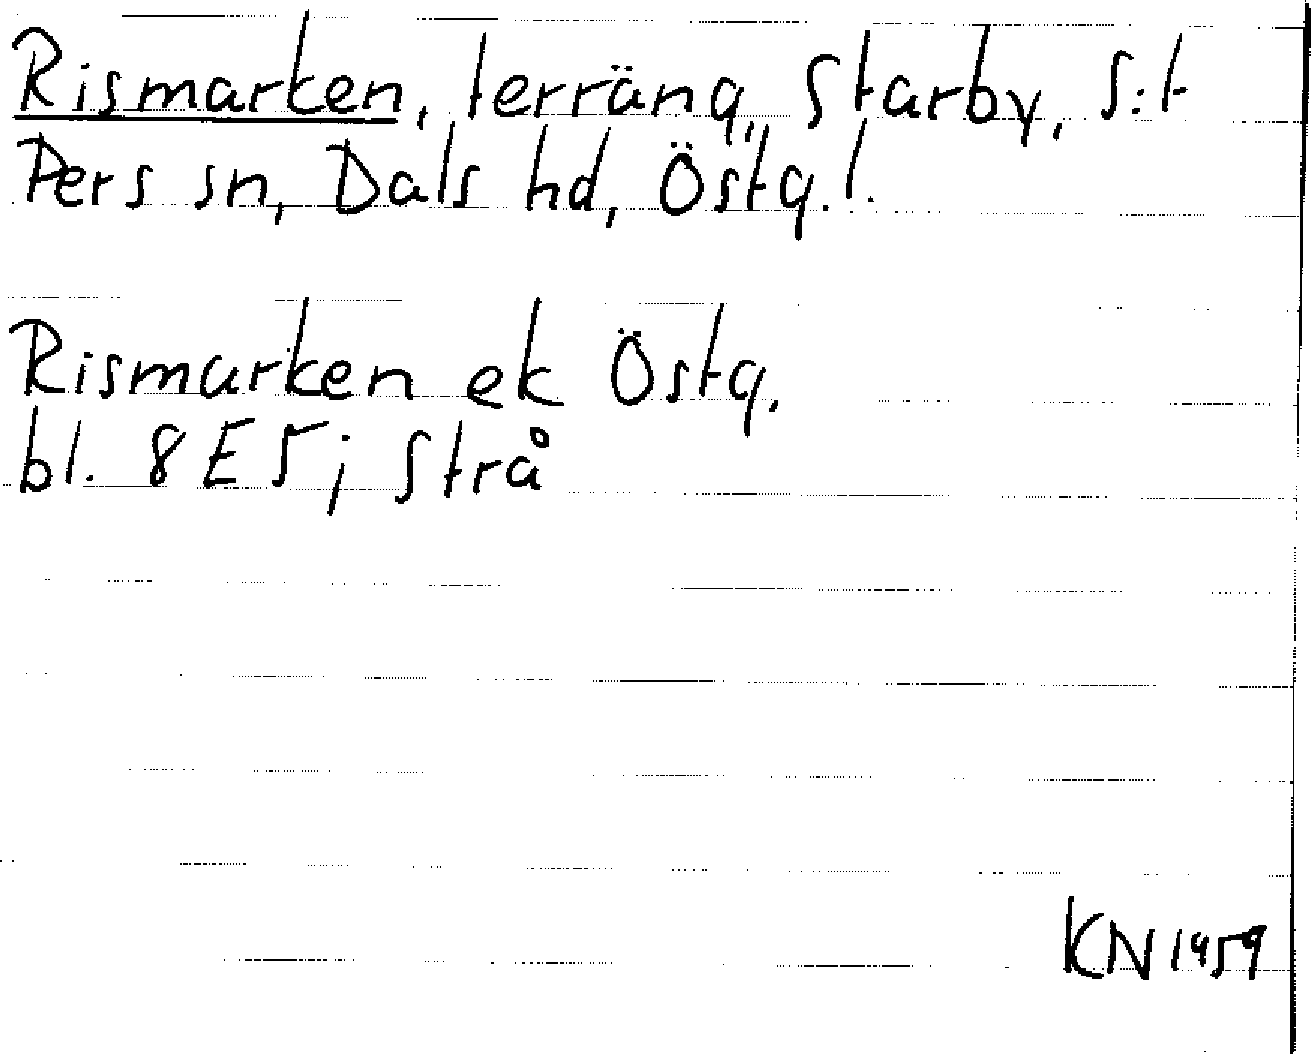 Rismarken, terräng, Starby, S:t
Pers sn, Dals hd, Östg.l.
Rismarken ek Östg.
bl. 8 E 5; Strå
KN 1959